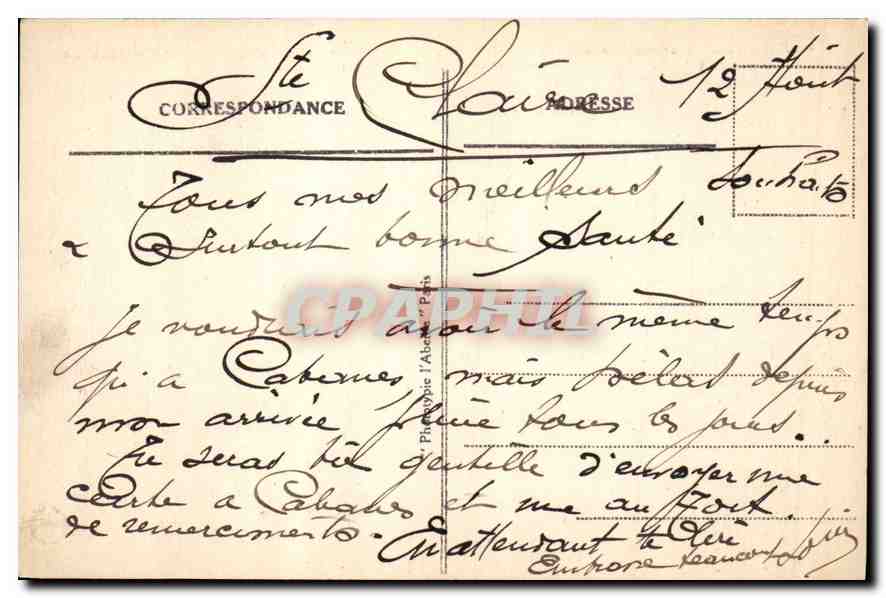 Ste Claire 12 Août
CORRESPONDANCE ADRESSE
Tous mes meilleurs souhaits
& Surtout bonne Santé
CPAPHIL
Phototypie l'Abeille" Paris
je voudrais avoir le même temps
qu'a Cabanes, mais hélas depuis
mon arrivée pluie tous les jours.
Tu seras bien gentille d'envoyer une
carte a Cabanes et une au Fort.
de remerciments.
En attendant ta
Embrasse beaucoup